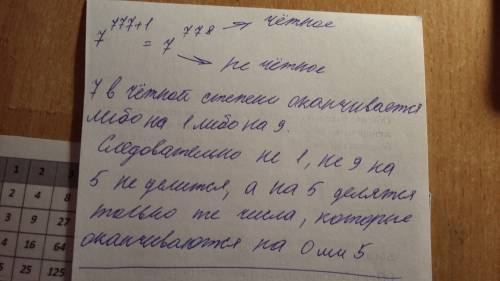 7^777+1 = 7^778 → чётное
→ не чётное
7 в чётной степени оканчивается
либо на 1 либо на 9.
Следователно не 1, не 9 на
5 не делится, а на 5 делятся
только те числа, которые
оканчиваются на 0 или 5
1 2 3
2 4 8
3 9 27
4 16 64
5 25 125